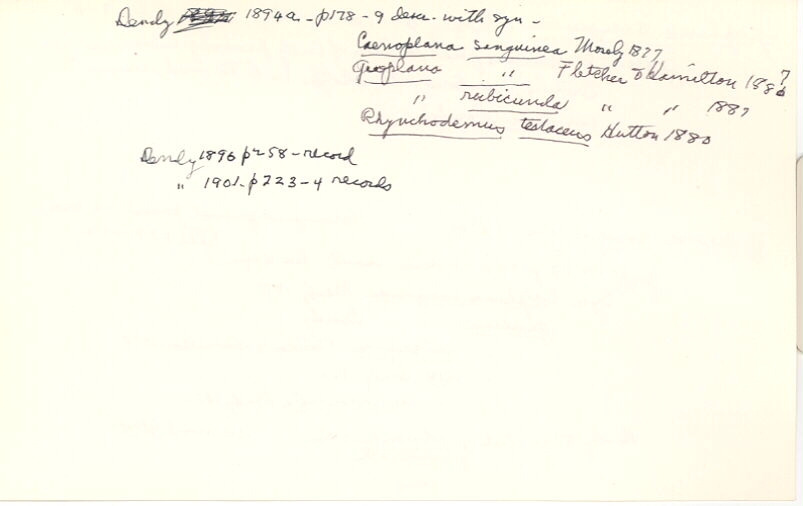 Dendy 1894a - p178 - 9 desc. with syn -
Caenoplana sanguinea Mosely 1877
Geoplana " Fletcher & Hamilton 1887
" rubicunda " " 1887
Rhynchodemus testaceus Hutton 1880
Dendy 1896 p258 - record
" 1901 - p223 - 4 records